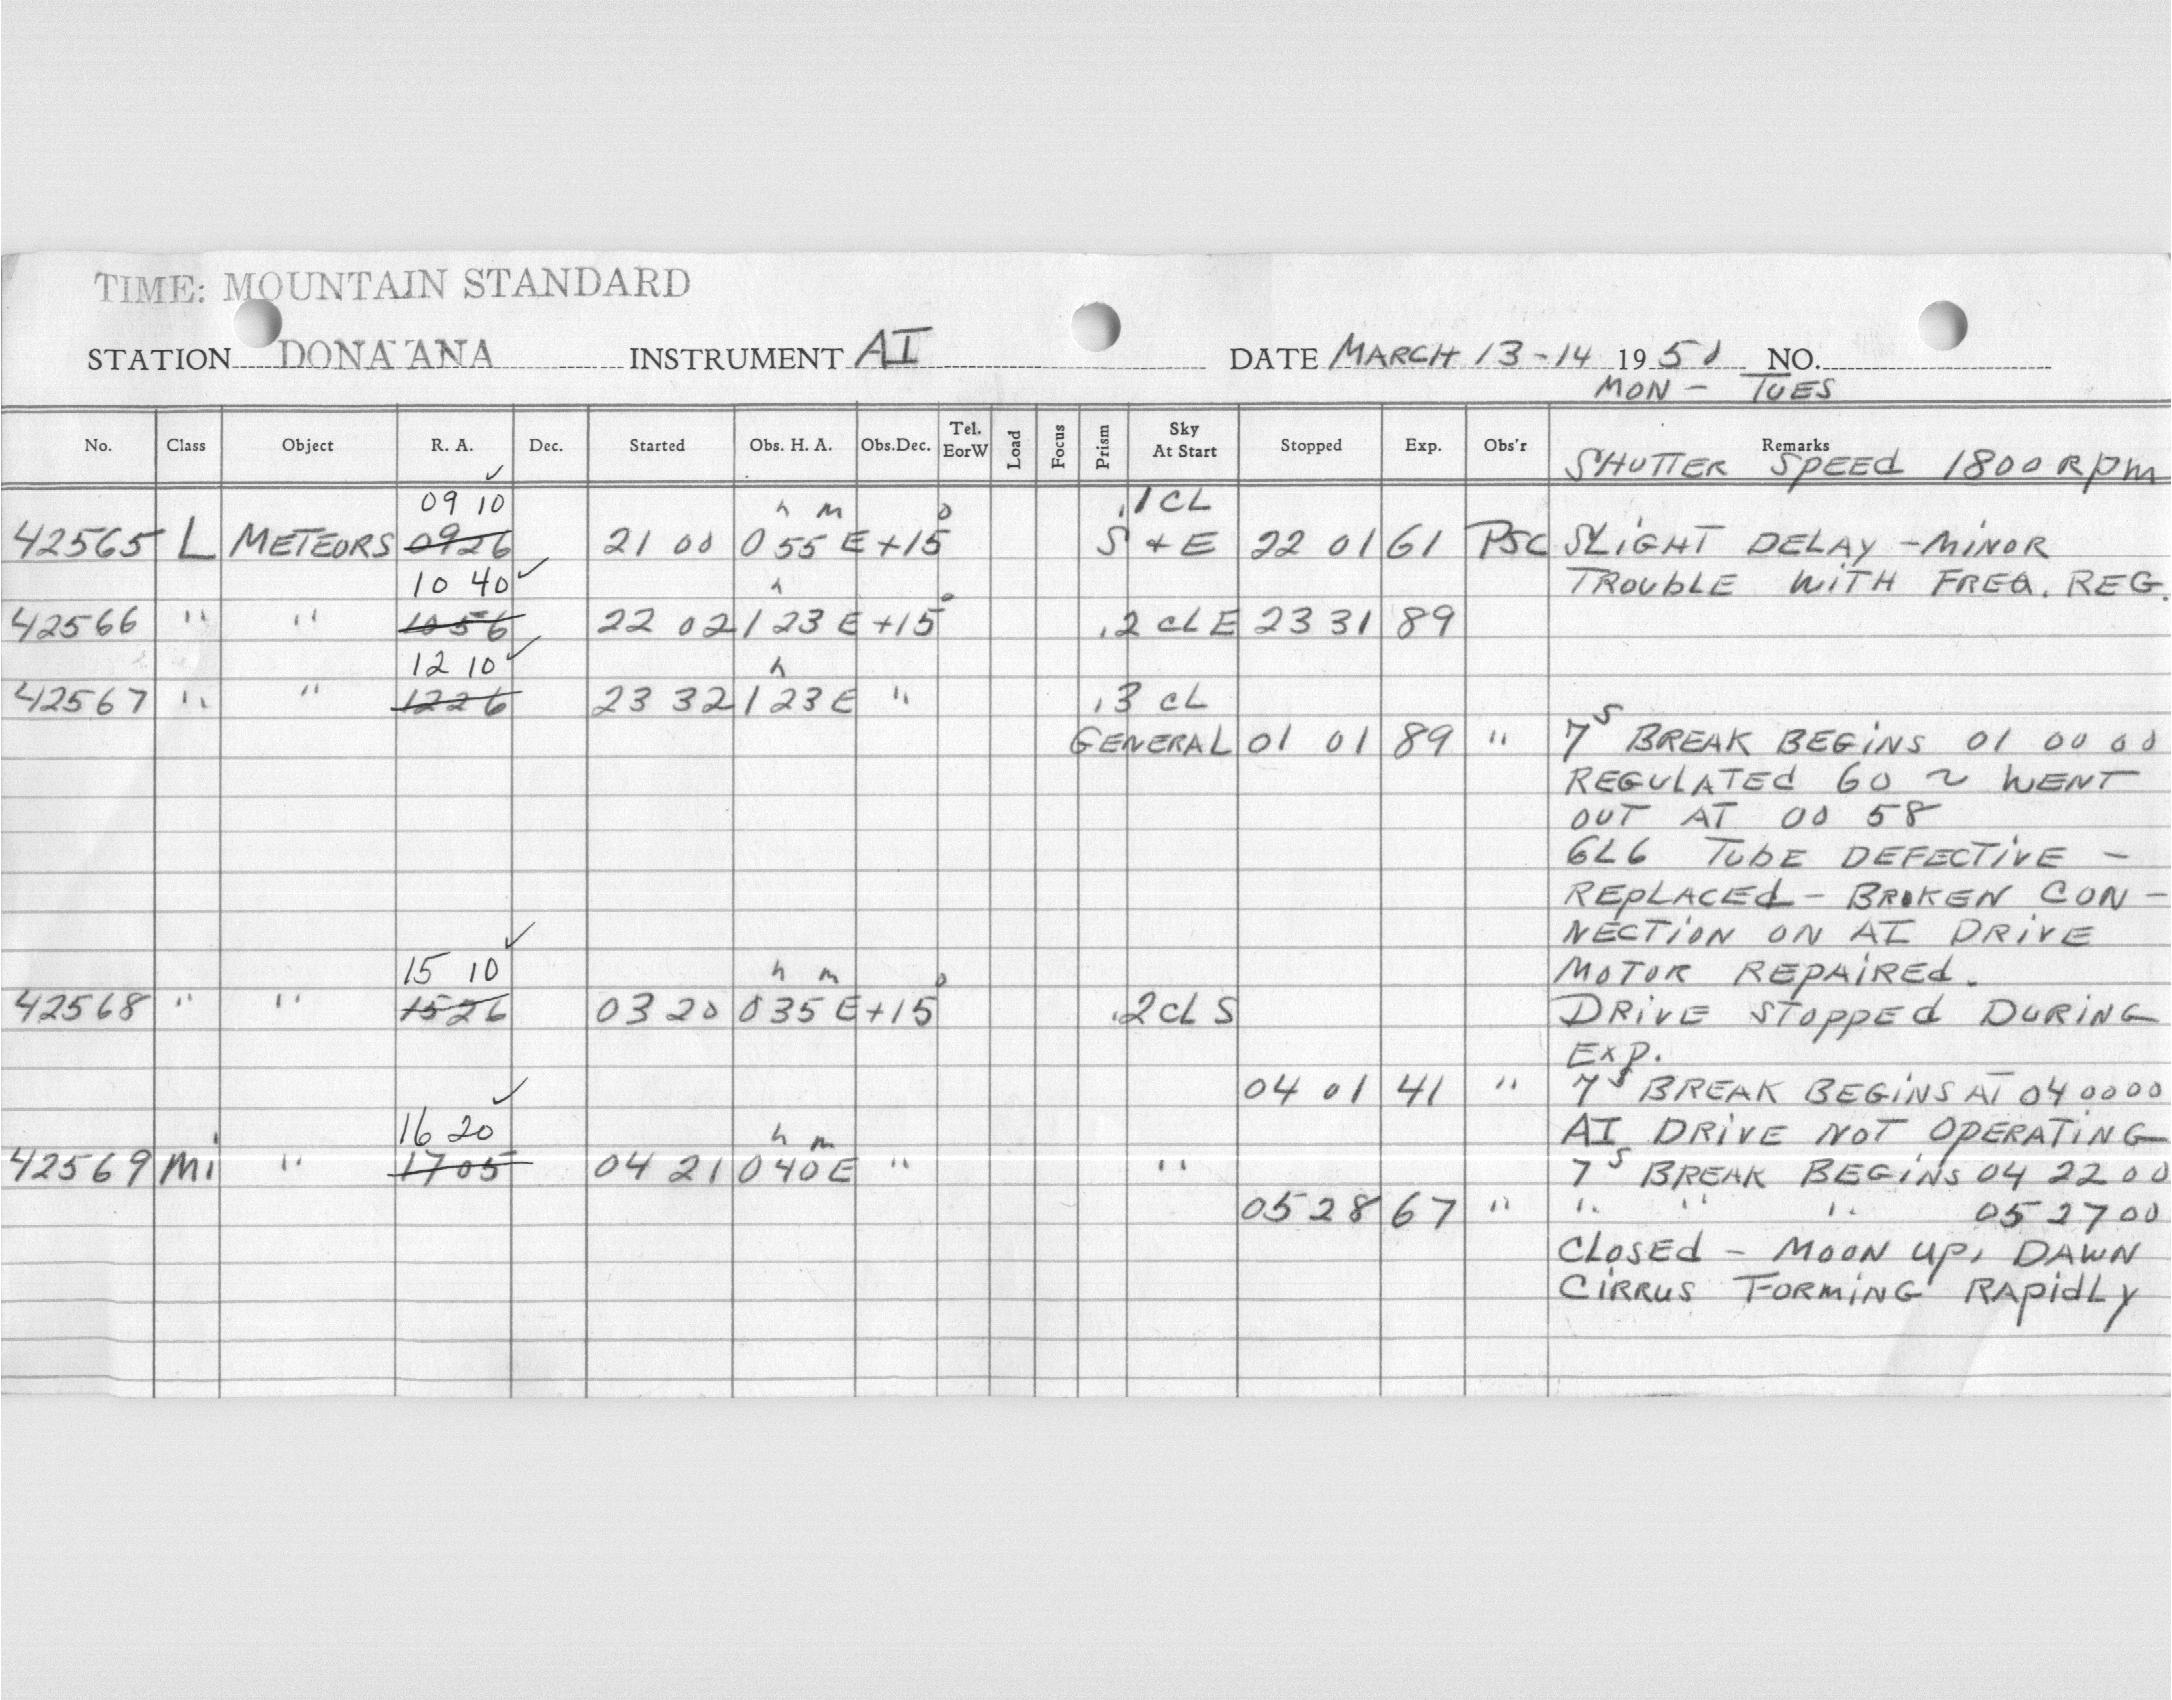 TIME: MOUNTAIN STANDARD
STATION DONA ANA INSTRUMENT AI DATE MARCH 13-14 1950 NO.
MON - TUES
No. Class Object R. A. Dec. Started Obs. H. A. Obs.Dec. Tel. EorW Load Focus Prism Sky At Start Stopped Exp. Obs'r Remarks
SHUTTER SPEED 1800 RPM
09 10 h m o .1 CL
42565 L METEORS 0926 21 00 0 55 E +15 S + E 22 01 61 PSC SLIGHT DELAY - MINOR
10 40 h TROUBLE WITH FREQ. REG.
42566 " " 1056 22 02 1 23 E +15° .2 CL E 23 31 89
12 10 h
42567 " " 1226 23 32 1 23 E " .3 CL
GENERAL 01 01 89 " 7S BREAK BEGINS 01 00 00
REGULATED 60 ~ WENT
OUT AT 00 58
6L6 TUBE DEFECTIVE -
REPLACED - BROKEN CON-
NECTION ON AI DRIVE
15 10 h m o MOTOR REPAIRED.
42568 " " 1526 03 20 0 35 E +15 .2 CL S DRIVE STOPPED DURING
EXP.
04 01 41 " 7S BREAK BEGINS AT 04 00 00
16 20 h m AI DRIVE NOT OPERATING
42569 Mi " 1705 04 21 0 40 E " " 7S BREAK BEGINS 04 22 00
05 28 67 " " " " 05 27 00
CLOSED - MOON UP, DAWN
CIRRUS FORMING RAPIDLY